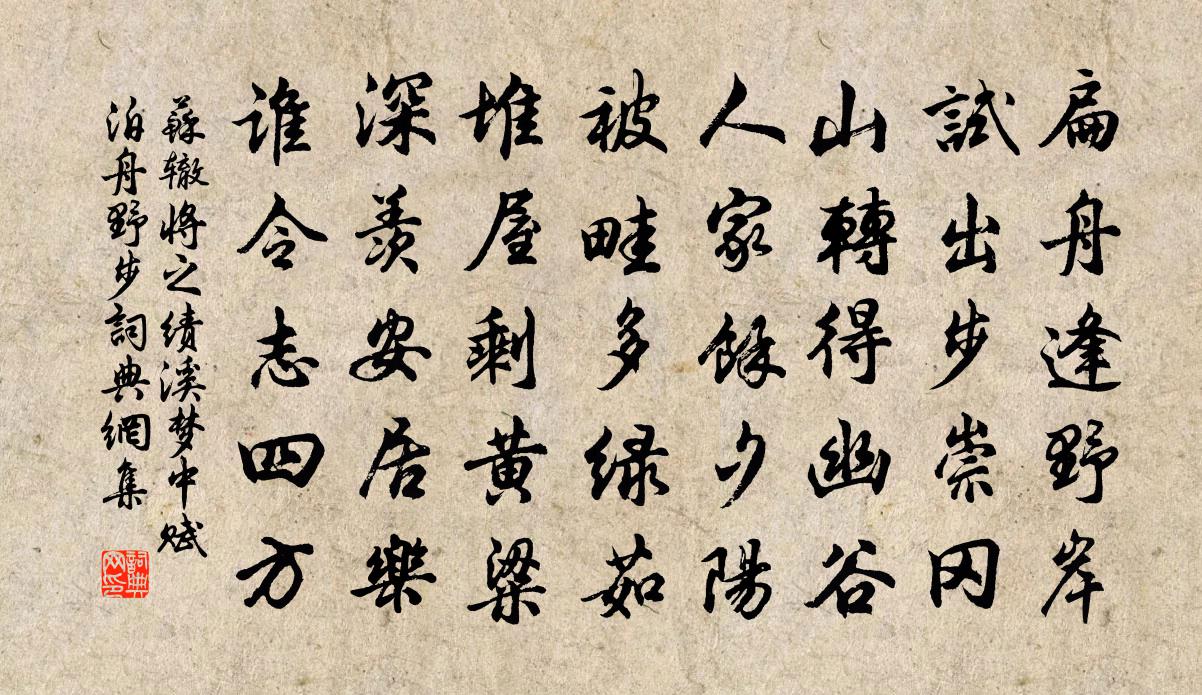 扁舟逢野岸
試出步崇冈
山轉得幽谷
人家餘夕陽
被畦多绿茹
堆屋剩黄粱
深羡安居樂
谁令志四方
蘇辙将之绩溪梦中赋
泊舟野步詞典網集
詞典网印